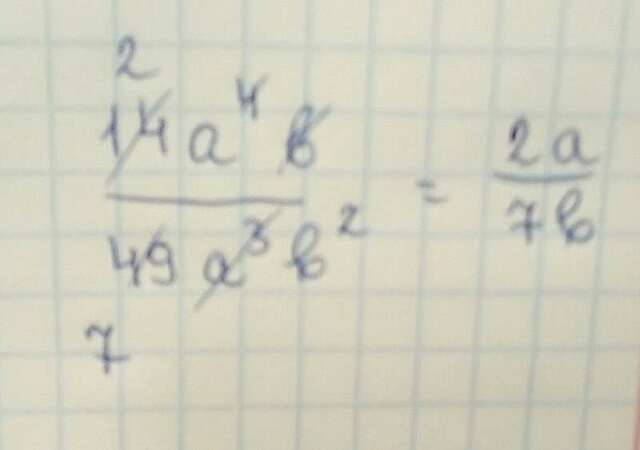 2
14 a⁴ b
49 a³ b² = 2a
7b
7